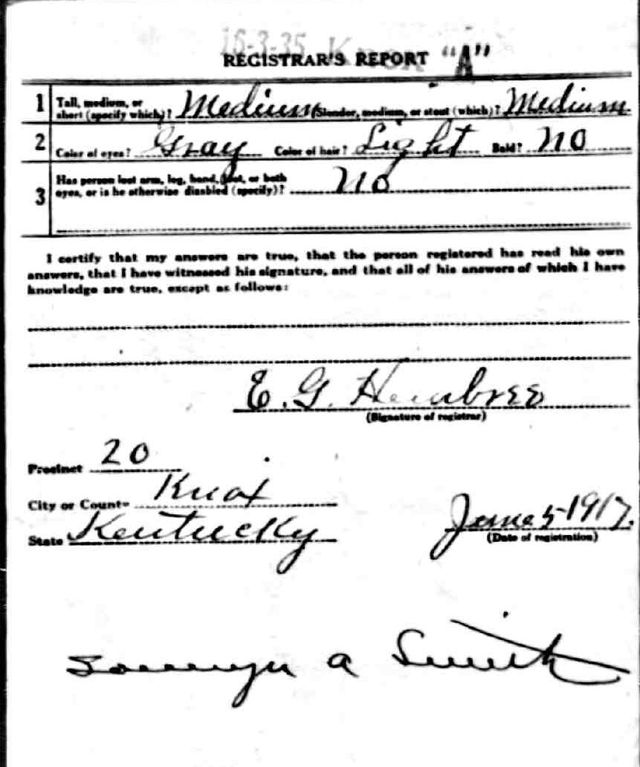 16-3-35 Knox
REGISTRAR'S REPORT "A"
1 Tall, medium, or short (specify which)? Medium Slender, medium, or stout (which)? Medium
2 Color of eyes? Gray Color of hair? Light Bald? No
3 Has person lost arm, leg, hand, foot, or both eyes, or is he otherwise disabled (specify)? No
I certify that my answers are true, that the person registered has read his own
answers, that I have witnessed his signature, and that all of his answers of which I have
knowledge are true, except as follows:
E. G. Hembree
(Signature of registrar)
Precinct 20
City or County Knox
State Kentucky
June 5-1917.
(Date of registration)
a Smith